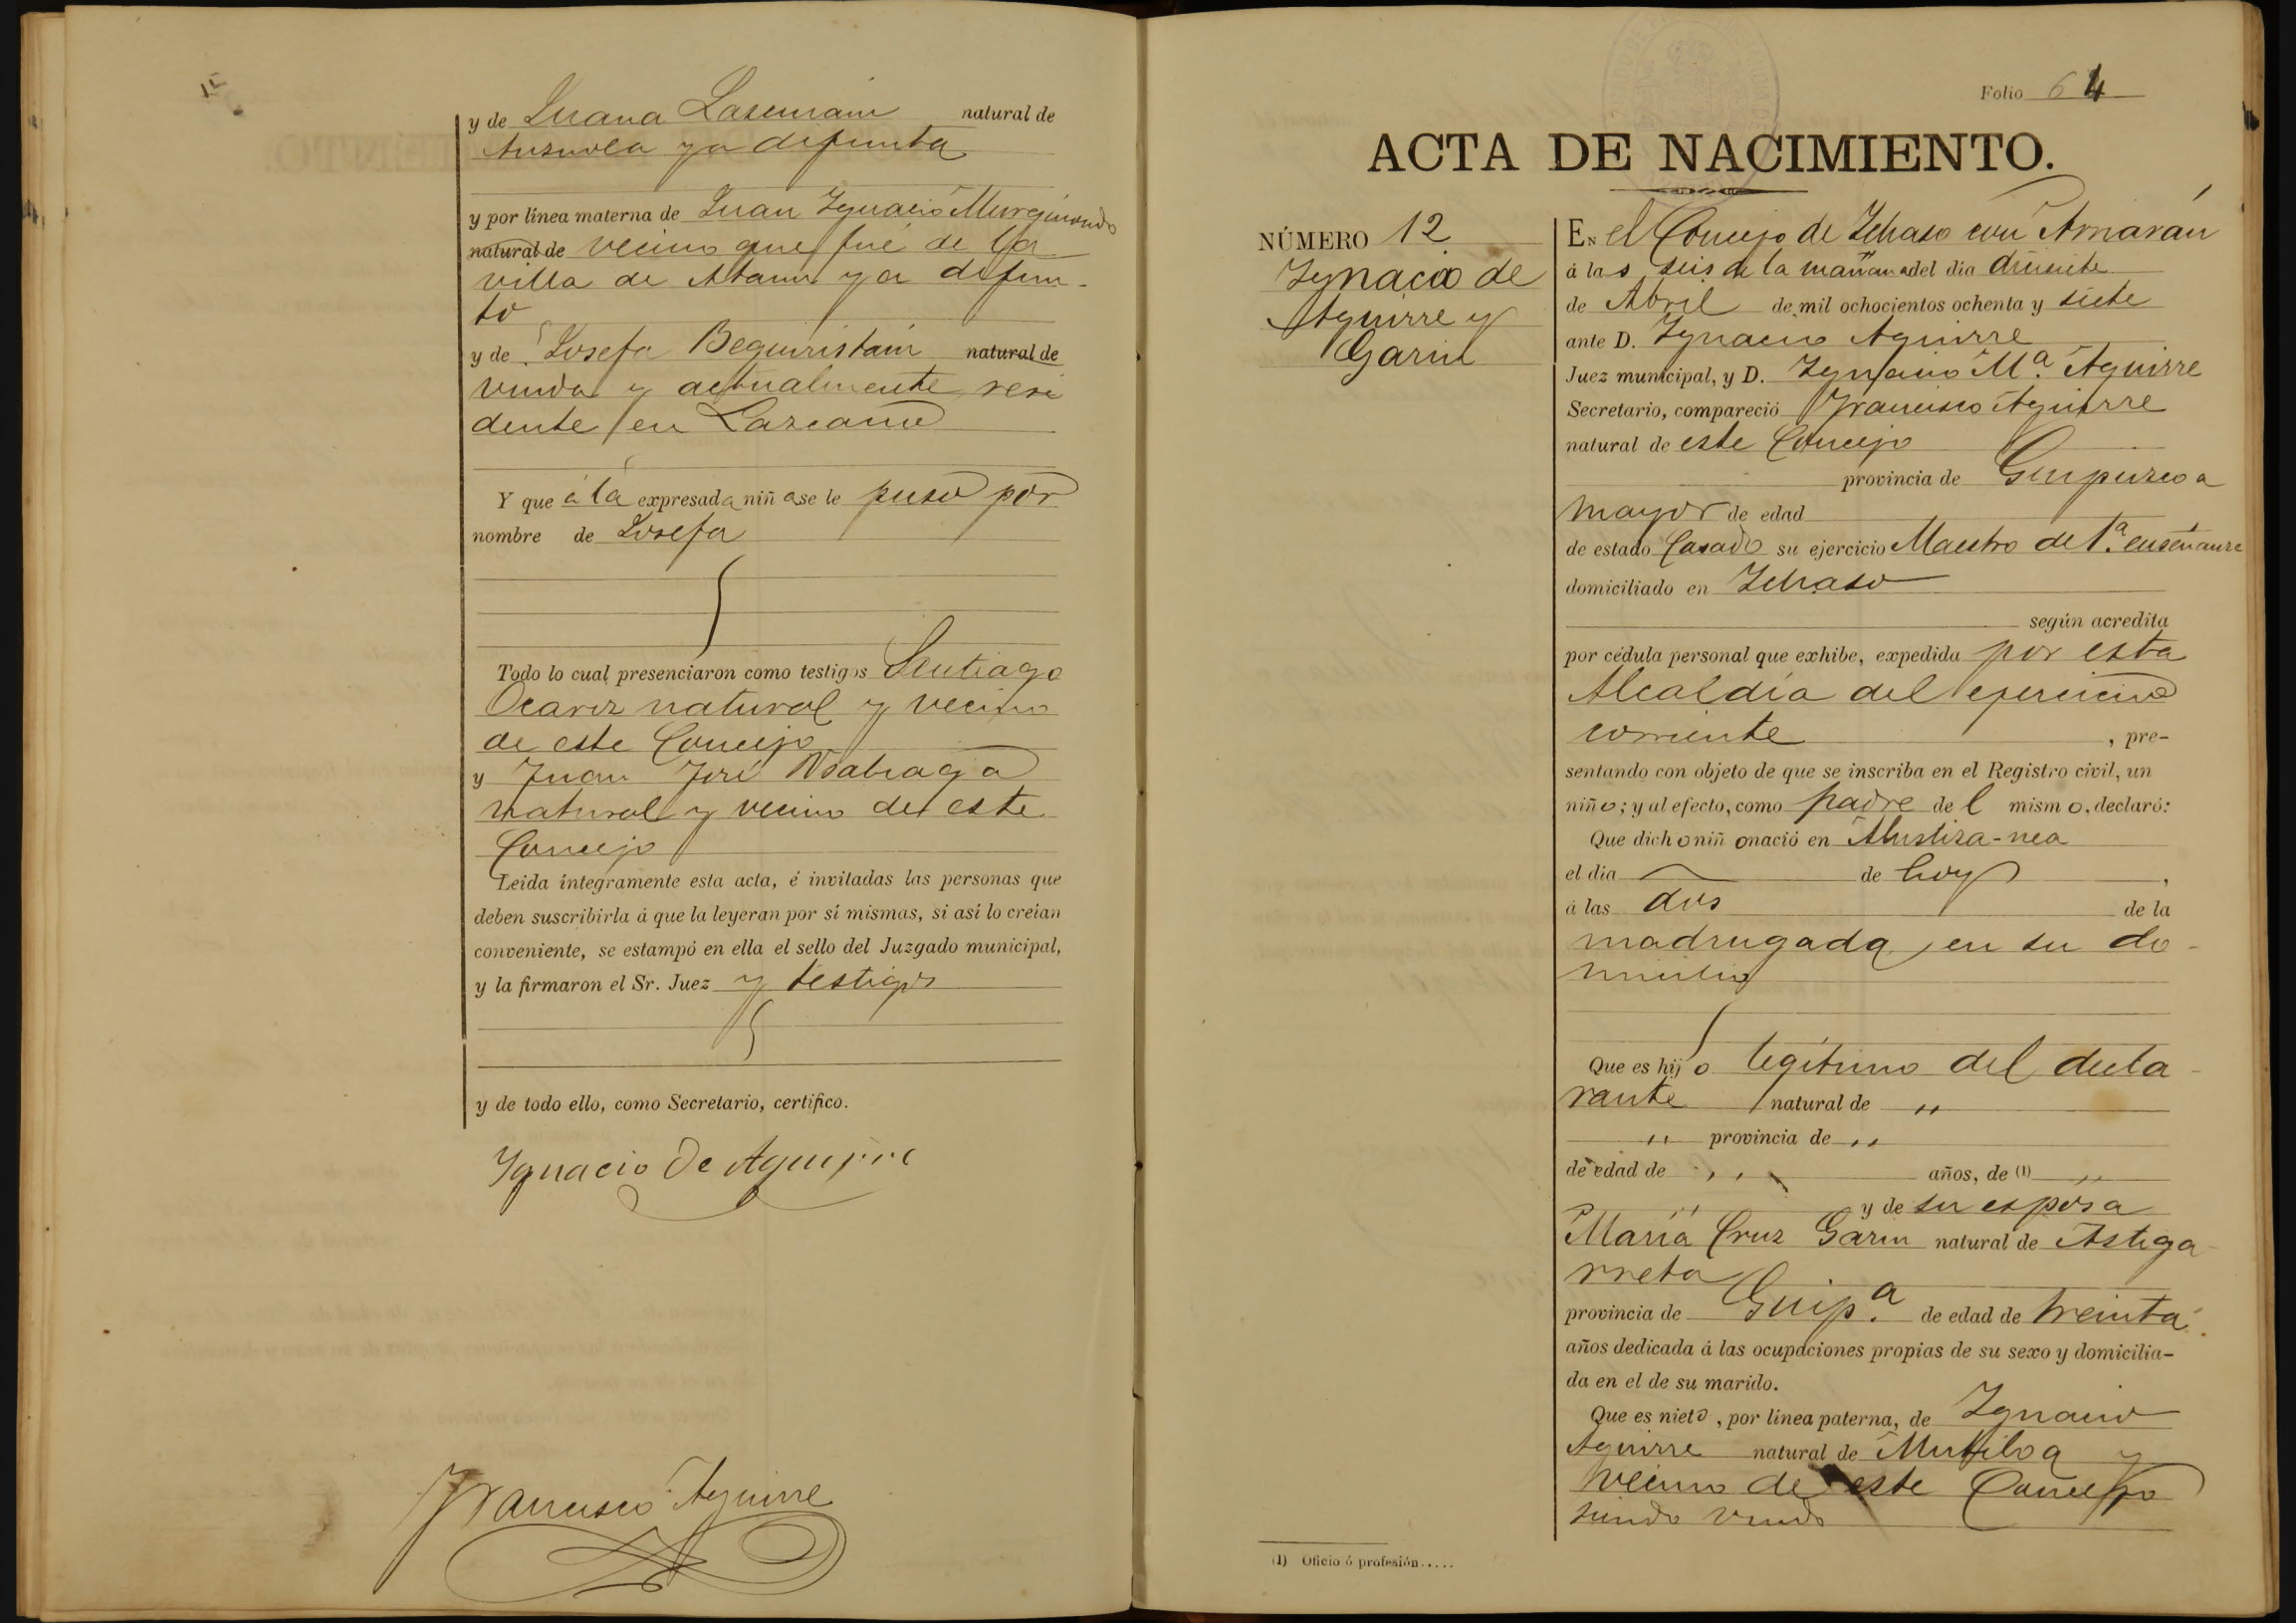 y de Juana Lasurain natural de
Anzuola ya difunta
y por línea materna de Juan Ygnacio Murguiondo
natural de vecino que fué de la
villa de Ataun ya difun-
to
y de Josefa Beguiristain natural de
viuda y actualmente resi
dente en Lazcano
Y que á la expresada niña se le puso por
nombre de Josefa
Todo lo cual presenciaron como testigos Santiago
Ocariz natural y vecino
de este Concejo
y Juan José
natural y vecino de este
Concejo
Leida íntegramente esta acta, é invitadas las personas que
deben suscribirla á que la leyeran por sí mismas, si así lo creían
conveniente, se estampó en ella el sello del Juzgado municipal,
y la firmaron el Sr. Juez y testigos
y de todo ello, como Secretario, certifico.
Ygnacio de Aguirre
Francisco Aguirre
Folio 64
ACTA DE NACIMIENTO.
NÚMERO 12
Ygnacio de
Aguirre y
Garin
En el Concejo de Ychaso con Arriarán
á las seis de la mañana del dia diecisiete
de Abril de mil ochocientos ochenta y siete
ante D. Ygnacio Aguirre
Juez municipal, y D. Ygnacio Mª. Aguirre
Secretario, compareció Francisco Aguirre
natural de este Concejo
provincia de Guipuzcoa
mayor de edad
de estado Casado su ejercicio Maestro de 1.ª enseñanza
domiciliado en Ychaso
según acredita
por cédula personal que exhibe, expedida por esta
Alcaldía del ejercicio
corriente, pre-
sentando con objeto de que se inscriba en el Registro civil, un
niño; y al efecto, como padre del mismo, declaró:
Que dicho niño nació en Alustiza-nea
el dia de hoy,
á las dos de la
madrugada, en su do-
micilio
Que es hijo legítimo del decla-
rante natural de "
" provincia de "
de edad de " años, de (1) "
" y de su esposa
María Cruz Garin natural de Astiga-
rreta
provincia de Guip.ª de edad de treinta
años dedicada á las ocupaciones propias de su sexo y domicilia-
da en el de su marido.
Que es nieto, por línea paterna, de Ygnacio
Aguirre natural de Mutiloa y
vecino de este Concejo
siendo viudo
(1) Oficio ó profesión.....